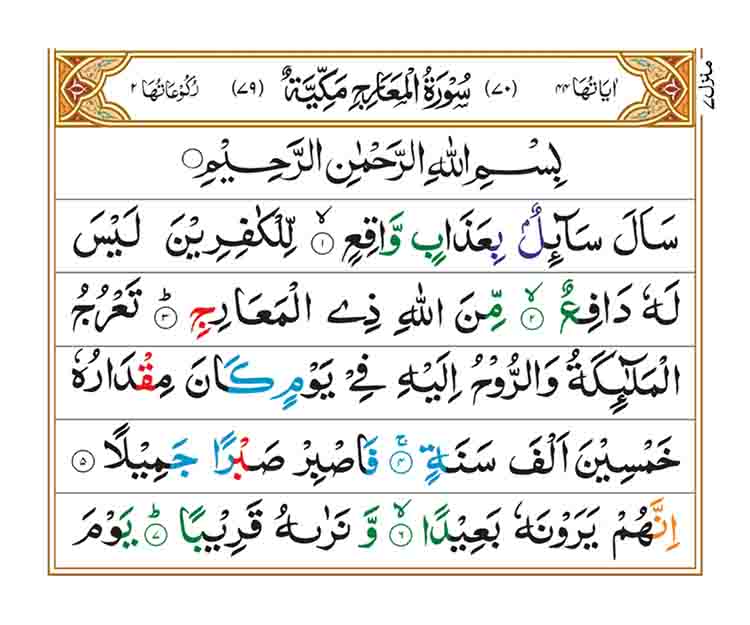 اٰیَاتُهَا ۴۴ (۷۰) سُوْرَةُ الْمَعَارِجِ مَكِّیَّةٌ (۷۹) رُكُوْعَاتُهَا ۲
منزل ۷
بِسْمِ اللّٰهِ الرَّحْمٰنِ الرَّحِیْمِ ۝
سَاَلَ سَآئِلٌۢ بِعَذَابٍ وَّاقِعٍ ۙ‏﴿۱﴾ لِّلْكٰفِرِیْنَ لَیْسَ
لَهٗ دَافِعٌ ۙ‏﴿۲﴾ مِّنَ اللّٰهِ ذِی الْمَعَارِجِ ؕ‏﴿۳﴾ تَعْرُجُ
الْمَلٰٓئِكَةُ وَالرُّوْحُ اِلَیْهِ فِیْ یَوْمٍ كَانَ مِقْدَارُهٗ
خَمْسِیْنَ اَلْفَ سَنَةٍ ۚ‏﴿۴﴾ فَاصْبِرْ صَبْرًا جَمِیْلًا ﴿۵﴾
اِنَّهُمْ یَرَوْنَهٗ بَعِیْدًا ۙ‏﴿۶﴾ وَّ نَرٰىهُ قَرِیْبًا ؕ‏﴿۷﴾ یَوْمَ